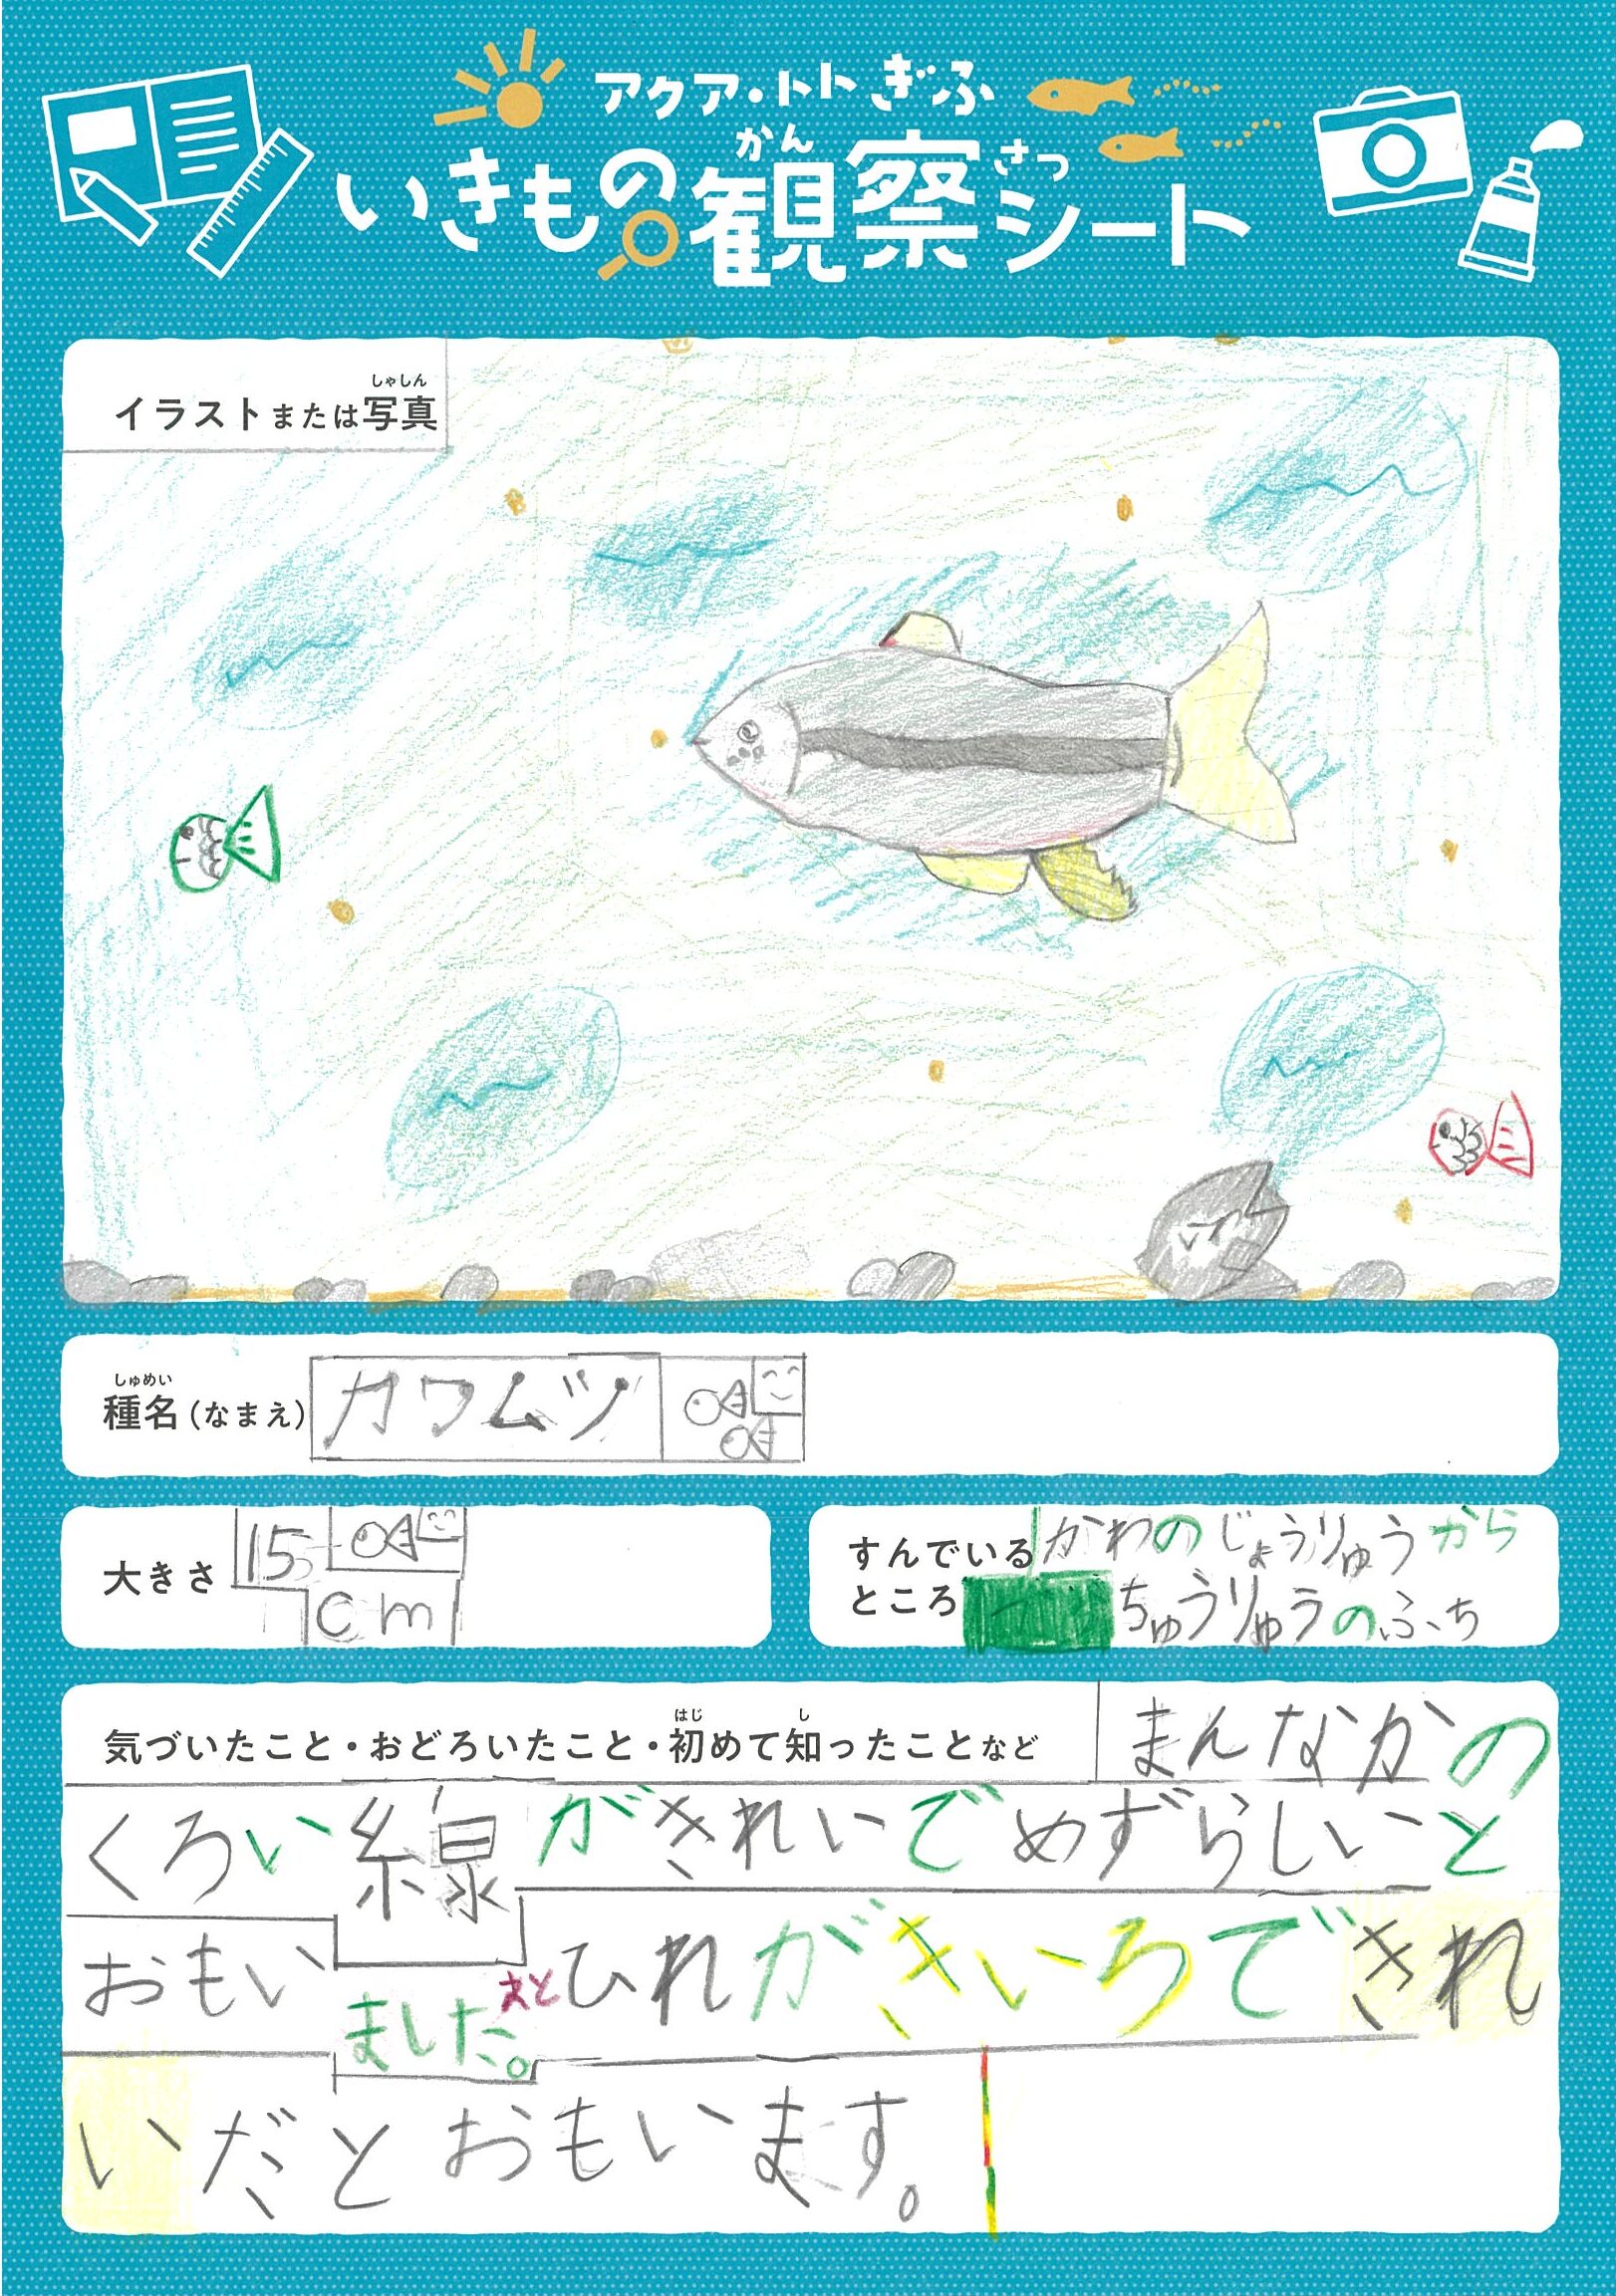 アクア・トトぎふ
かん さつ
いきもの観察シート
しゃしん
イラストまたは写真
しゅめい
種名(なまえ) カワムツ
大きさ 15
cm
すんでいる かわのじょうりゅうから
ところ ちゅうりゅうのふち
はじ し
気づいたこと・おどろいたこと・初めて知ったことなど まんなかの
くろい線がきれいでめずらしいと
おもい
ました。あとひれがきいろできれ
いだとおもいます。